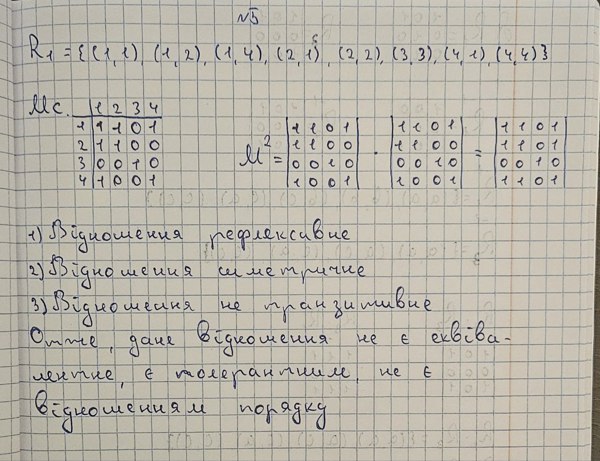 №5
R₁ = {(1,1), (1,2), (1,4), (2,1), (2,2), (3,3), (4,1), (4,4)}
Mс. | 1 2 3 4
1 | 1 1 0 1
2 | 1 1 0 0
3 | 0 0 1 0
4 | 1 0 0 1
M² = |1 1 0 1| · |1 1 0 1| = |1 1 0 1|
|1 1 0 0| |1 1 0 0| |1 1 0 1|
|0 0 1 0| |0 0 1 0| |0 0 1 0|
|1 0 0 1| |1 0 0 1| |1 1 0 1|
1) Відношення рефлексивне
2) Відношення симетричне
3) Відношення не транзитивне
Отже, дане відношення не є еквіва-
лентне, є толерантним, не є
відношенням порядку